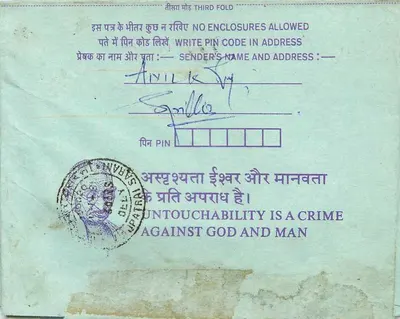 तीसरा मोड़ THIRD FOLD
इस पत्र के भीतर कुछ न रखिए NO ENCLOSURES ALLOWED
पते में पिन कोड लिखें WRITE PIN CODE IN ADDRESS
प्रेषक का नाम और पता :— SENDER'S NAME AND ADDRESS :—
ANIL K
पिन PIN
अस्पृश्यता ईश्वर और मानवता
के प्रति अपराध है।
UNTOUCHABILITY IS A CRIME
AGAINST GOD AND MAN